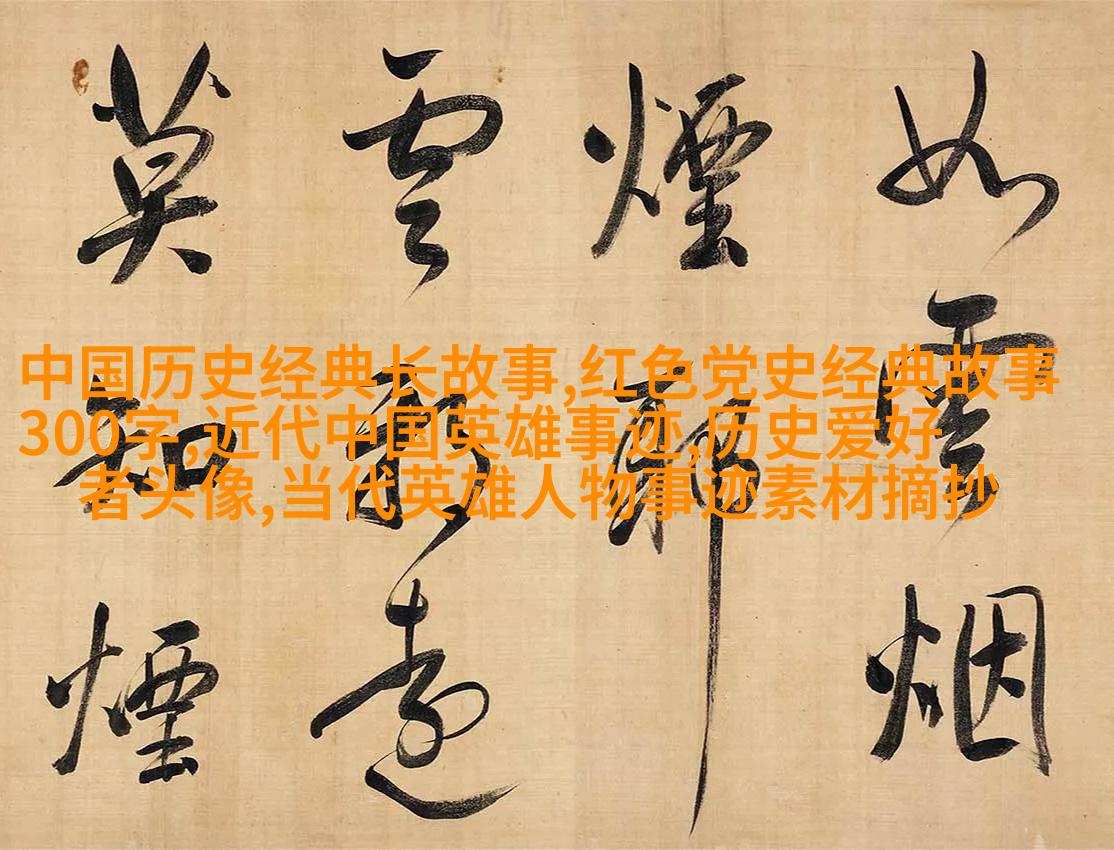 中国历史经典长故事,红色党史经典故事
300字,近代中国英雄事迹,历史爱好
者头像,当代英雄人物事迹素材摘抄
如雲烟
煙耶
雲遠
莫知煙